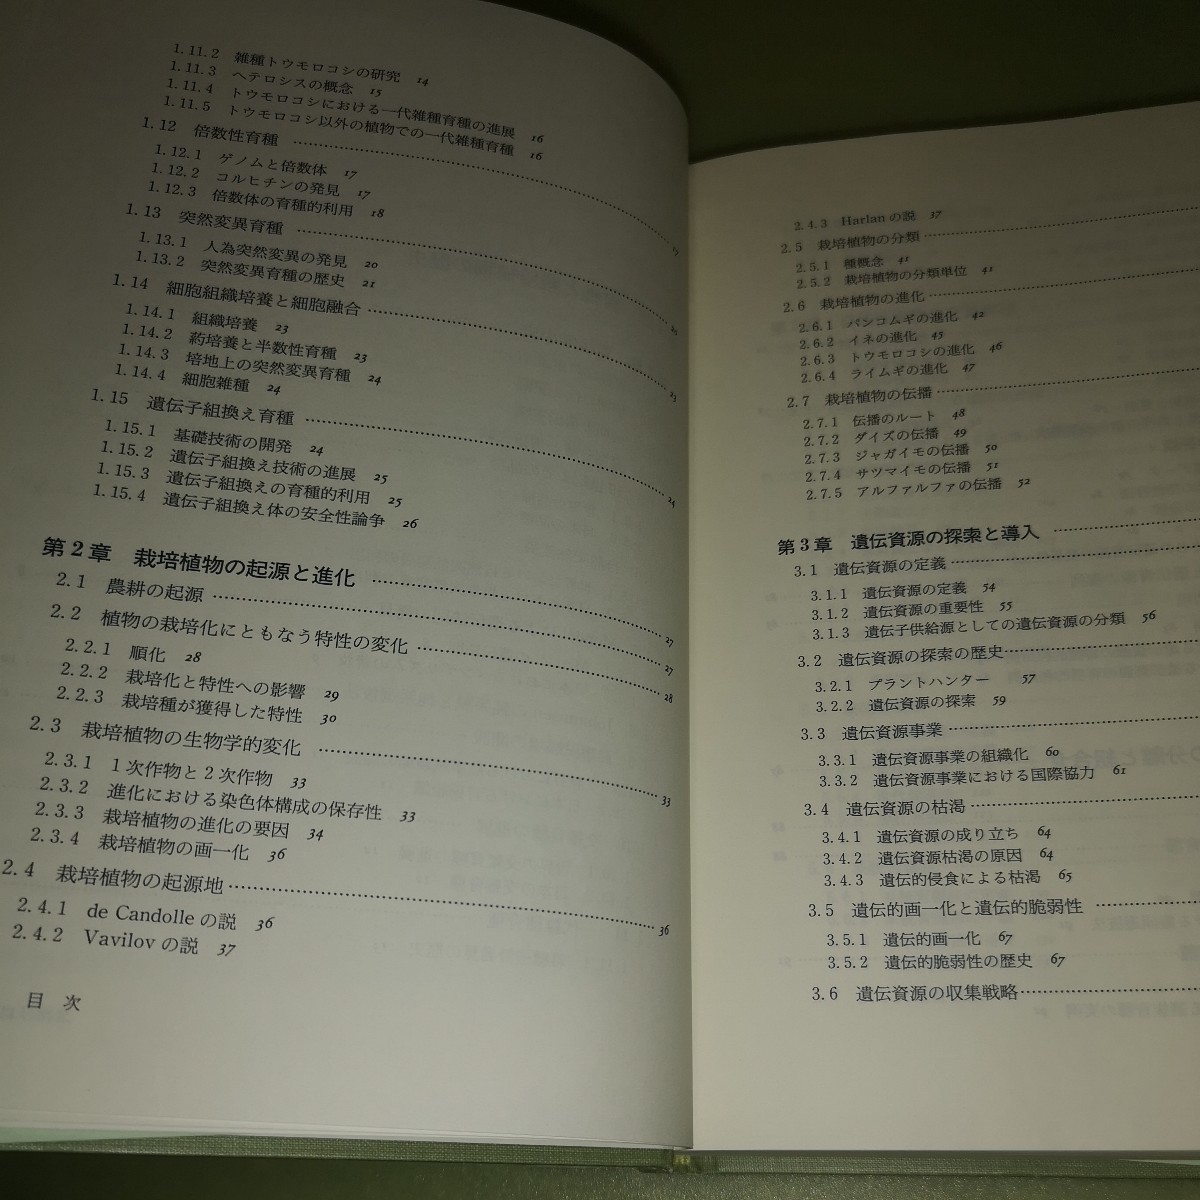 1.11.2 雑種トウモロコシの研究 14
1.11.3 ヘテロシスの概念 15
1.11.4 トウモロコシにおける一代雑種育種の進展 16
1.11.5 トウモロコシ以外の植物での一代雑種育種 16
1.12 倍数性育種 17
1.12.1 ゲノムと倍数体 17
1.12.2 コルヒチンの発見 17
1.12.3 倍数体の育種的利用 18
1.13 突然変異育種 20
1.13.1 人為突然変異の発見 20
1.13.2 突然変異育種の歴史 21
1.14 細胞組織培養と細胞融合 23
1.14.1 組織培養 23
1.14.2 葯培養と半数性育種 23
1.14.3 培地上の突然変異育種 24
1.14.4 細胞雑種 24
1.15 遺伝子組換え育種 24
1.15.1 基礎技術の開発 24
1.15.2 遺伝子組換え技術の進展 25
1.15.3 遺伝子組換えの育種的利用 25
1.15.4 遺伝子組換え体の安全性論争 26
第2章 栽培植物の起源と進化 27
2.1 農耕の起源 27
2.2 植物の栽培化にともなう特性の変化 28
2.2.1 順化 28
2.2.2 栽培化と特性への影響 29
2.2.3 栽培種が獲得した特性 30
2.3 栽培植物の生物学的変化 33
2.3.1 1次作物と2次作物 33
2.3.2 進化における染色体構成の保存性 33
2.3.3 栽培植物の進化の要因 34
2.3.4 栽培植物の画一化 36
2.4 栽培植物の起源地 36
2.4.1 de Candolleの説 36
2.4.2 Vavilovの説 37
目 次
2.4.3 Harlanの説 37
2.5 栽培植物の分類
2.5.1 種概念 41
2.5.2 栽培植物の分類単位 41
2.6 栽培植物の進化
2.6.1 パンコムギの進化 42
2.6.2 イネの進化 45
2.6.3 トウモロコシの進化 46
2.6.4 ライムギの進化 47
2.7 栽培植物の伝播
2.7.1 伝播のルート 48
2.7.2 ダイズの伝播 49
2.7.3 ジャガイモの伝播 50
2.7.4 サツマイモの伝播 51
2.7.5 アルファルファの伝播 52
第3章 遺伝資源の探索と導入
3.1 遺伝資源の定義
3.1.1 遺伝資源の定義 54
3.1.2 遺伝資源の重要性 55
3.1.3 遺伝子供給源としての遺伝資源の分類 56
3.2 遺伝資源の探索の歴史
3.2.1 プラントハンター 57
3.2.2 遺伝資源の探索 59
3.3 遺伝資源事業
3.3.1 遺伝資源事業の組織化 60
3.3.2 遺伝資源事業における国際協力 61
3.4 遺伝資源の枯渇
3.4.1 遺伝資源の成り立ち 64
3.4.2 遺伝資源枯渇の原因 64
3.4.3 遺伝的侵食による枯渇 65
3.5 遺伝的画一化と遺伝的脆弱性
3.5.1 遺伝的画一化 67
3.5.2 遺伝的脆弱性の歴史 67
3.6 遺伝資源の収集戦略